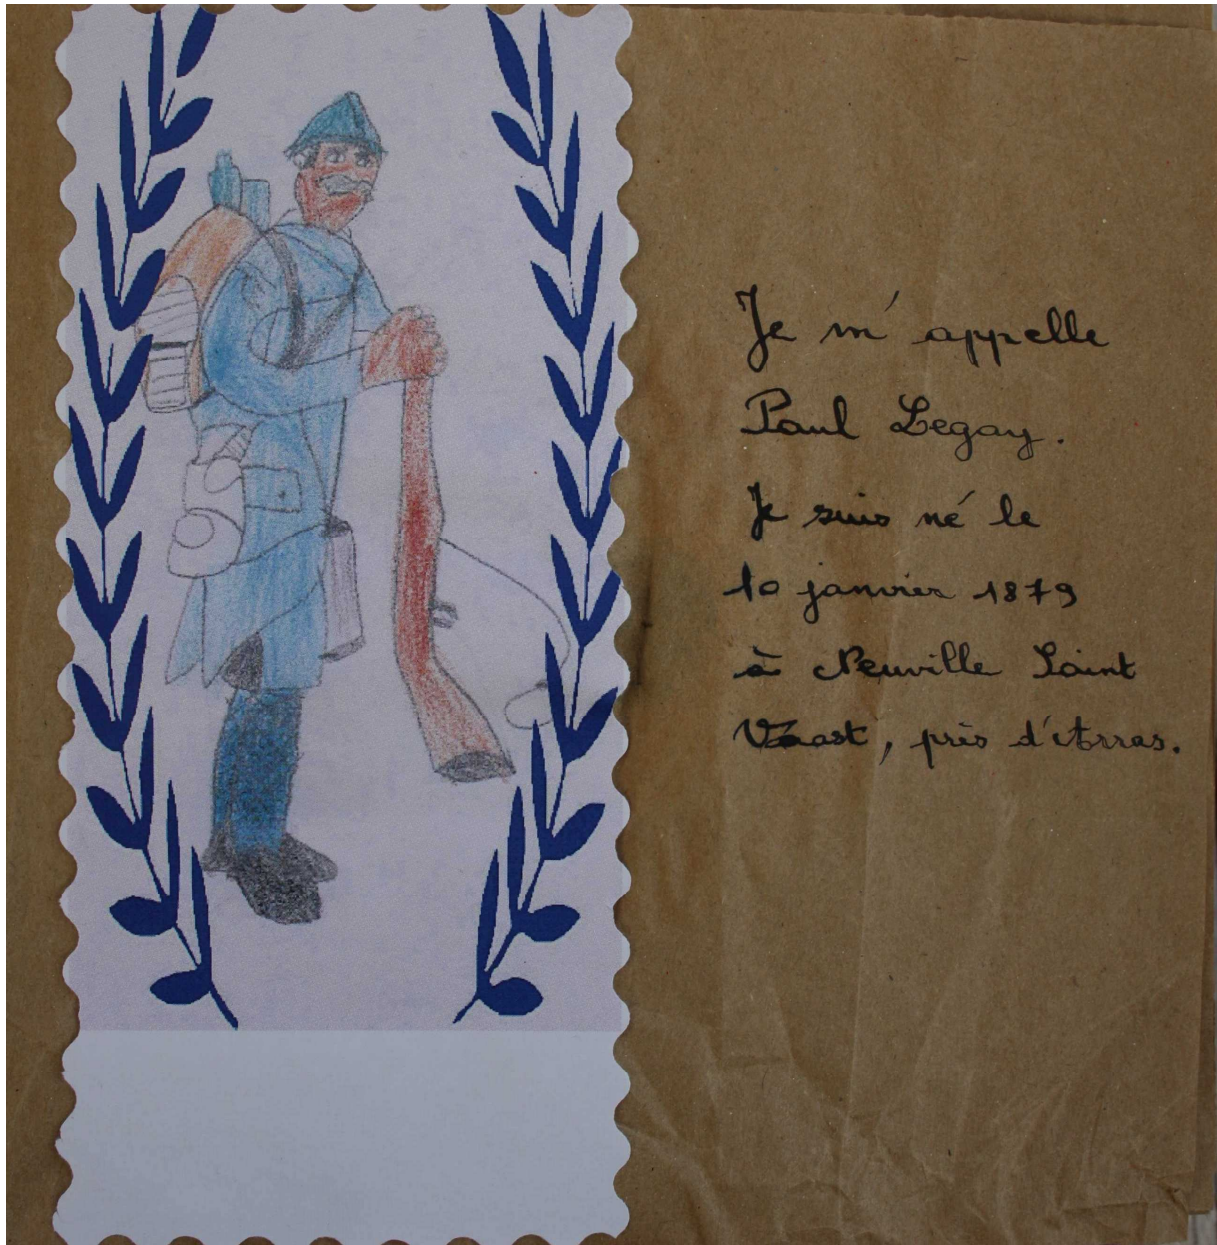 Je m'appelle
Paul Legay.
Je suis né le
10 janvier 1879
à Neuville Saint
Vaast, près d'Arras.